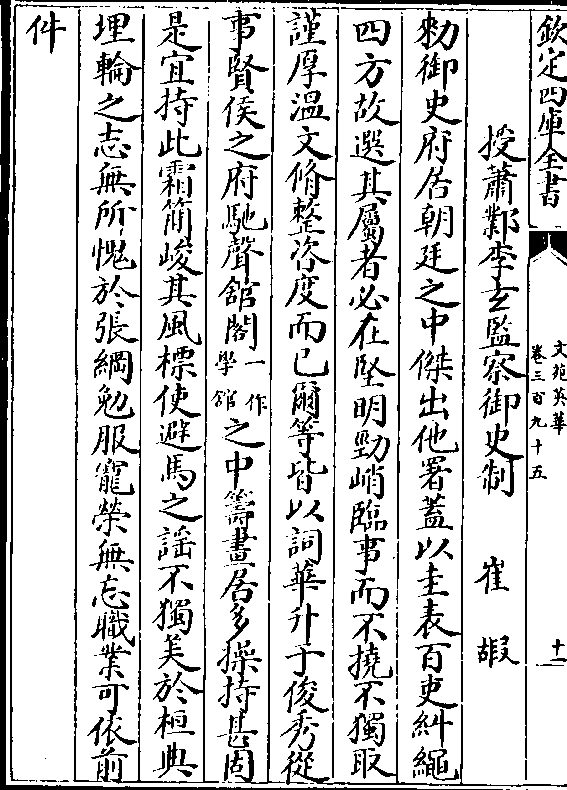 欽定四庫全書
文苑英華
卷三百九十五
十一
授蕭鄴李玄監察御史制 崔嘏
勑御史府居朝廷之中傑出他署蓋以圭表百吏糾繩
四方故選其屬者必在堅明勁峭臨事而不撓不獨取
謹厚溫文脩整咨度而已爾等皆以詞華升于俊秀從
事賢侯之府馳聲舘閣一作學舘之中籌畫居多操持甚固
是宜持此霜簡峻其風標使避馬之謡不獨美於桓典
埋輪之志無所愧於張綱勉服寵榮無忘職業可依前
件